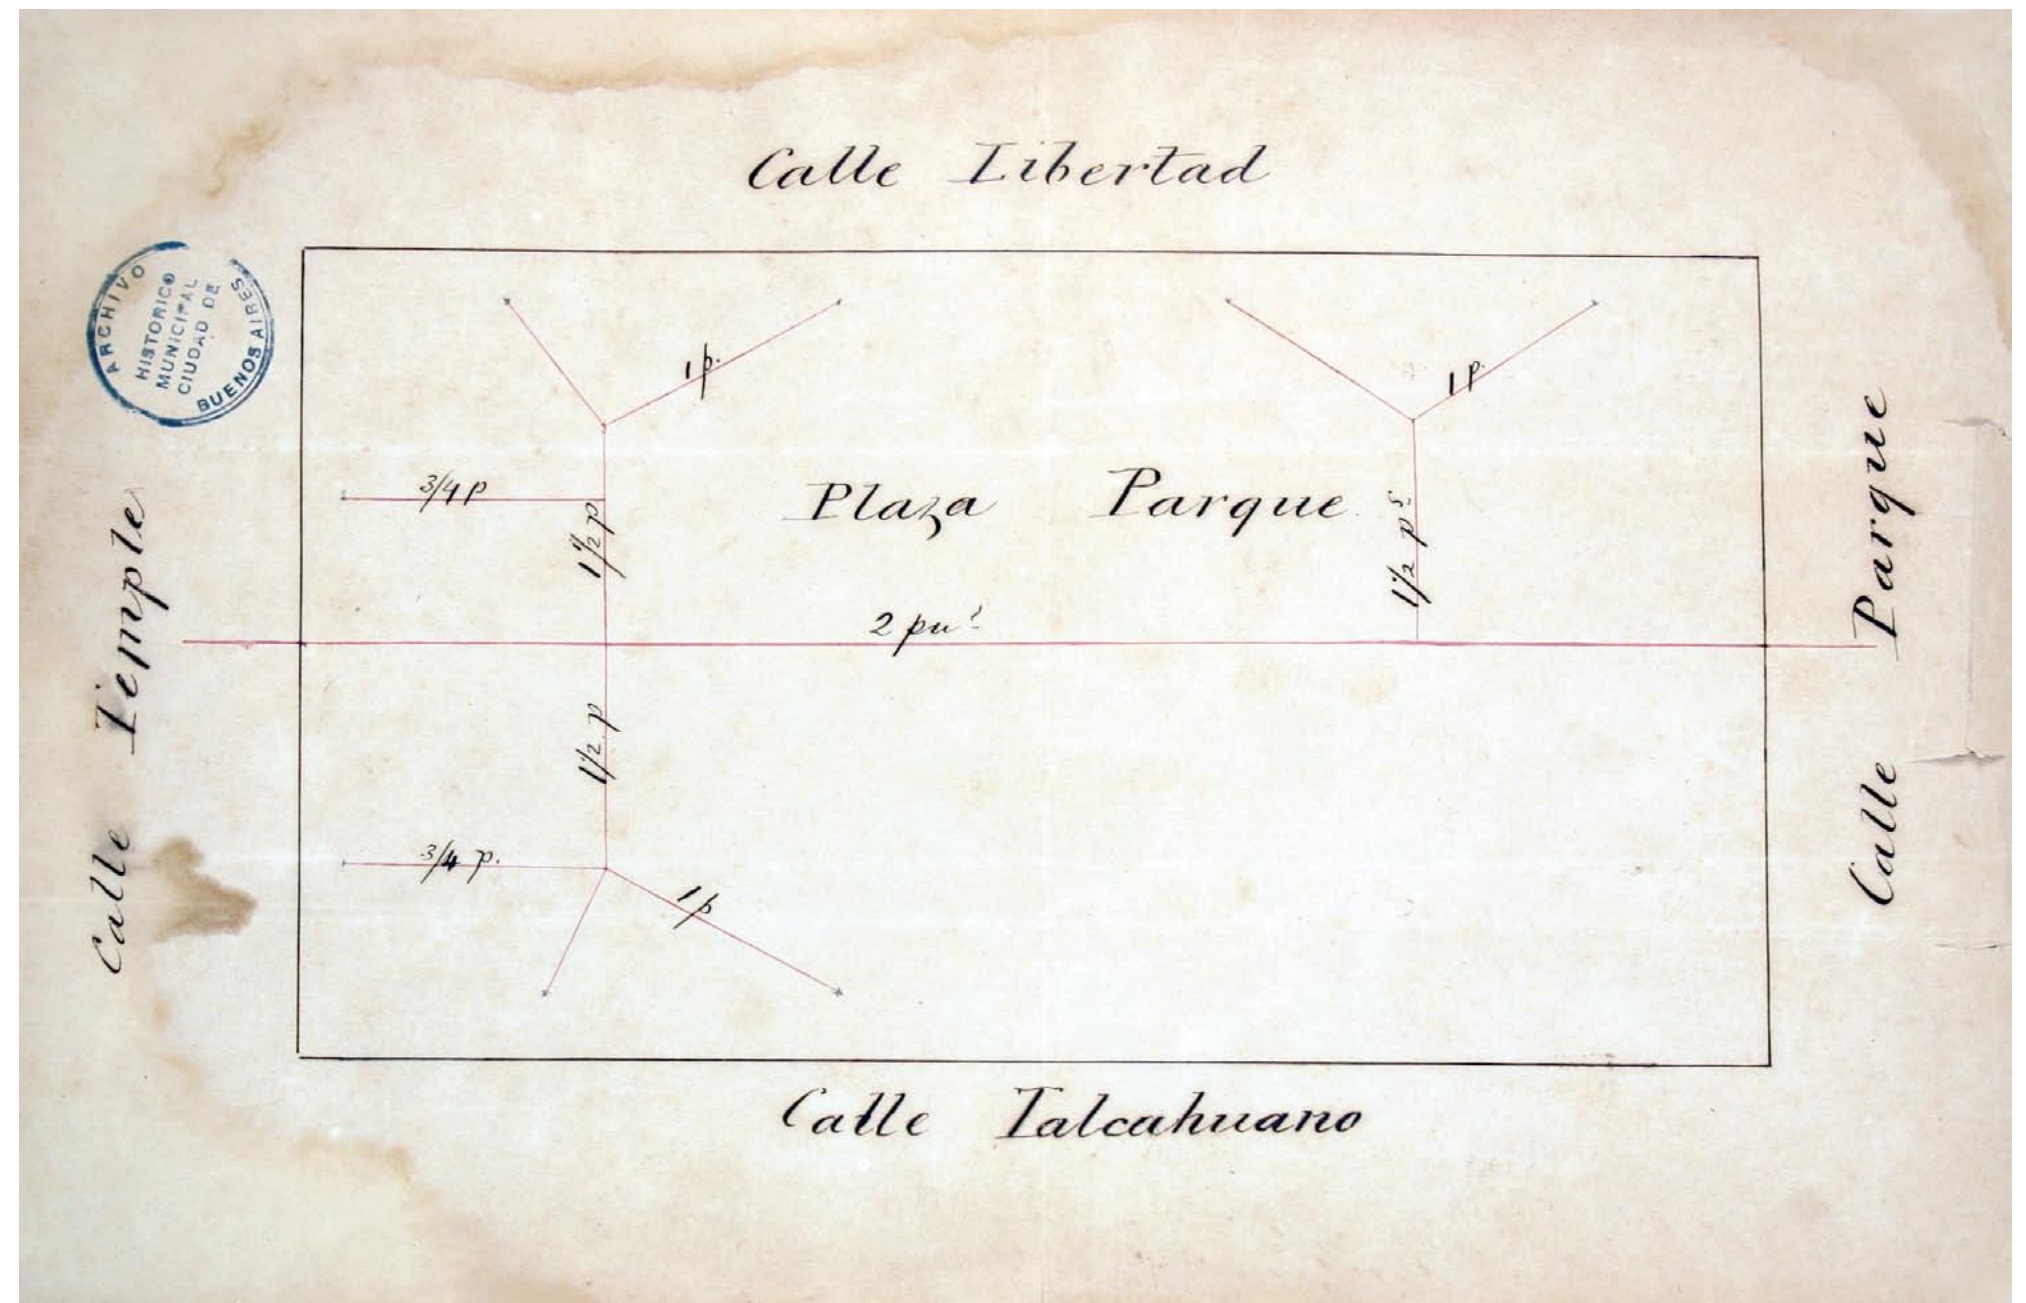 Calle Libertad
ARCHIVO
HISTORICO
MUNICIPAL
CIUDAD DE
BUENOS AIRES
1 p.
1 p.
3/4 p
Plaza Parque
1 1/2 p
1 1/2 pˢ
2 puˢ
Calle Temple
Calle Parque
1 1/2 p
3/4 p.
1 p
Calle Talcahuano